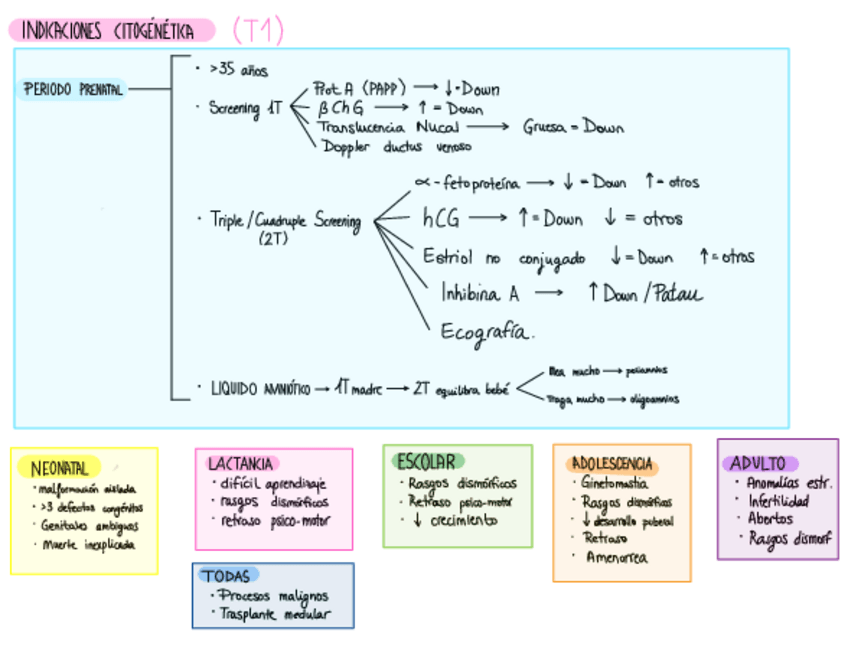 INDICACIONES CITOGÉNÉTICA (T1)
PERIODO PRENATAL
· >35 años
· Screening 1T
Prot A (PAPP) → ↓=Down
βChG → ↑ = Down
Translucencia Nucal → Gruesa = Down
Doppler ductus venoso
· Triple/Cuadruple Screening
(2T)
α-fetoproteína → ↓ = Down ↑= otros
hCG → ↑= Down ↓ = otros
Estriol no conjugado ↓=Down ↑= otras
Inhibina A → ↑ Down /Patau
Ecografía.
· LIQUIDO AMNIÓTICO → 1T madre → 2T equilibra bebé
Mea mucho → poliamnios
Traga mucho → oligoamnios
NEONATAL
· malformación aislada
· >3 defectos congénitos
· Genitales ambiguos
· Muerte inexplicada
LACTANCIA
· difícil aprendisaje
· rasgos dismórficos
· retraso psico-motor
ESCOLAR
· Rasgos dismórficos
· Retraso psico-motor
· ↓ crecimiento
ADOLESCENCIA
· Ginetomastia
· Rasgos dismórficos
· ↓ desarrollo puberal
· Retraso
· Amenorrea
ADULTO
· Anomalías estr.
· Infertilidad
· Abortos
· Rasgos dismorf
TODAS
· Procesos malignos
· Trasplante medular